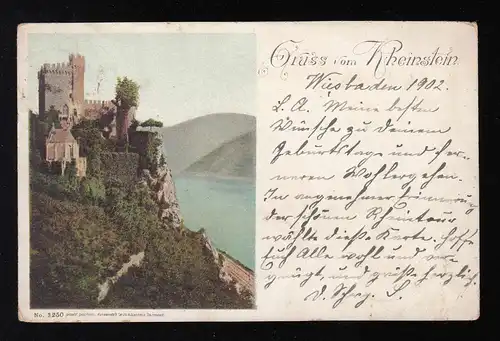 Gruss vom Rheinstein
Wiesbaden 1902.
L. A. Meine besten
Wünsche zu Deinem
Geburtstage und fer-
neren Wohlergehen.
In angenehmer Erinnerung
der schönen Rheintour
wählte diese Karte. Hoffe
Euch Alle wohl und ver-
gnügt, und grüße herzlich
D. S.
No. 3250